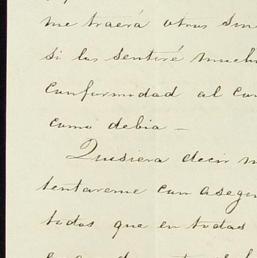 me traerá otros
si los sentiré much
conformidad al
como debia —
Quisiera decir
tentareme con asegu
todos que en todas